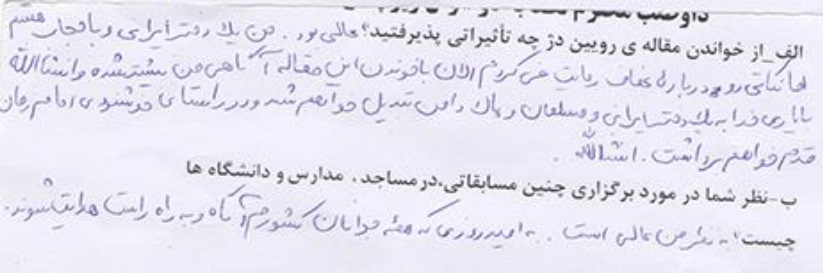 الف_از خواندن مقاله ی رویین دژ چه تأثیراتی پذیرفتید؟ عالی بود. من یک دختر ایرانی و با حجاب هستم
اما نکاتی رو در باره عفاف رعایت نمی کردم الان با خوندن این مقاله آگاهی من بیشتر شده و انشاالله
با یاری خدا به یک دختر ایرانی و مسلمان و پاک دامن تبدیل خواهم شد و در راستای خوشنودی امام زمان
قدم خواهم برداشت. انشاالله.
ب-نظر شما در مورد برگزاری چنین مسابقاتی،در مساجد، مدارس و دانشگاه ها
چیست؟ به نظر من عالی است. به امید روزی که همه جوانان کشورم آگاه و به راه راست هدایت شوند.